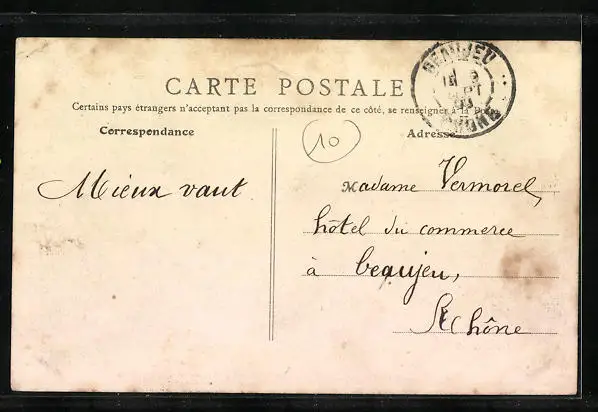 CARTE POSTALE
Certains pays étrangers n'acceptant pas la correspondance de ce côté, se renseigner à la Poste
Correspondance
Adresse
10
BEAUJEU
RHONE
Mieux vaut
Madame Vermorel,
hôtel du commerce
à beaujeu,
Rhône